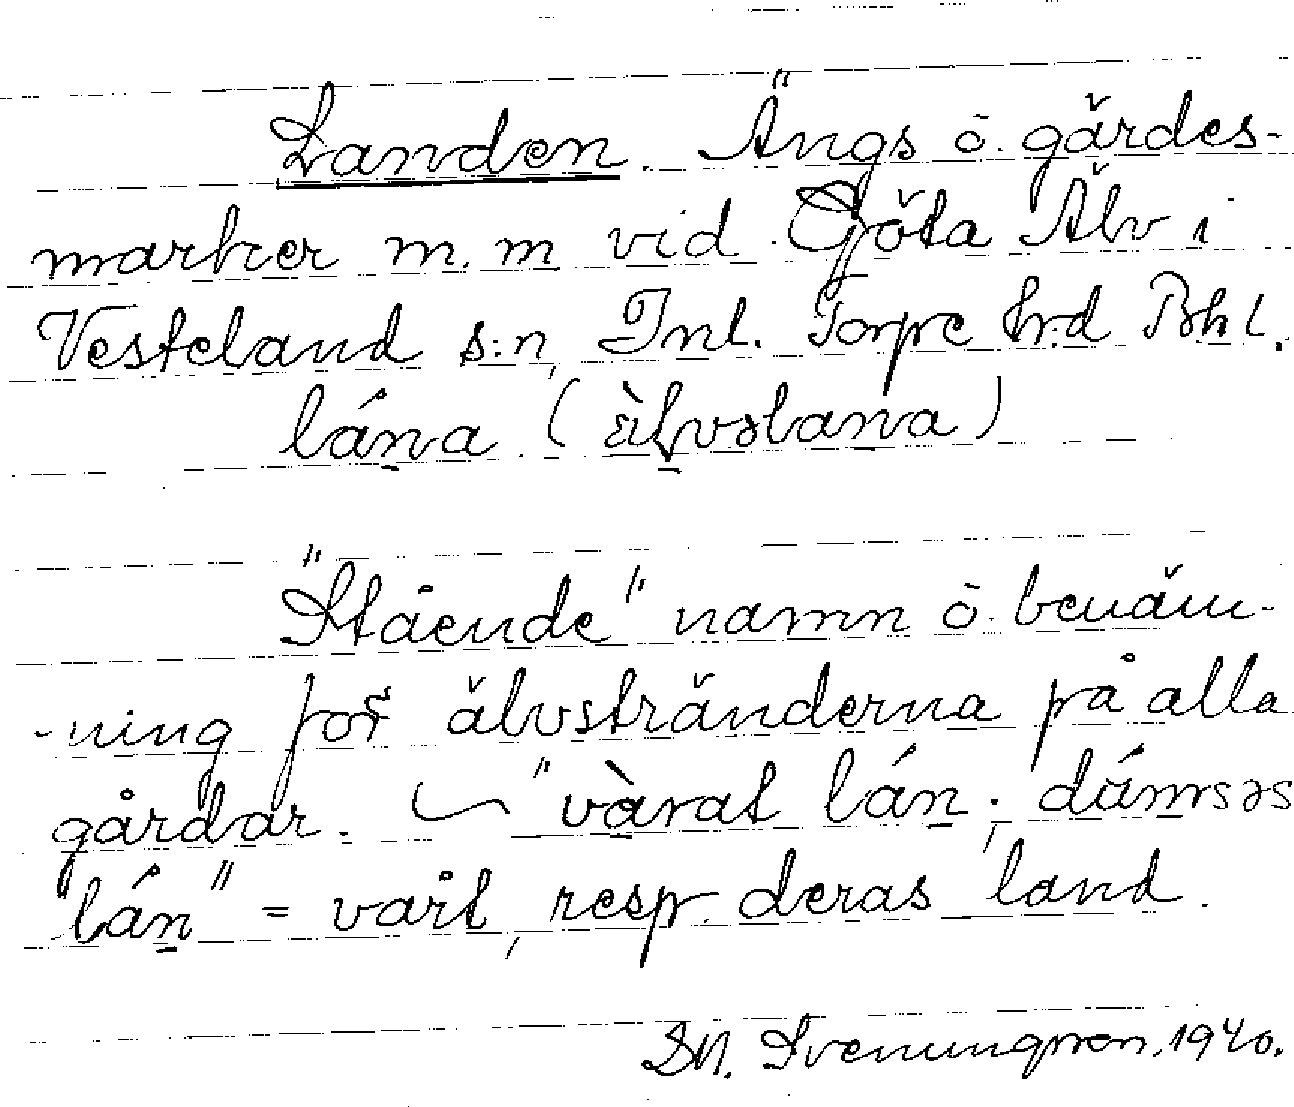 Landen. Ängs ō. gärdes-
marker m.m vid Göta Älv i
Vesteland s:n, Inl. Torpe hrd Bhl.
lána (ä̀lvəlana)
"Stående" namn ō. benäm-
-ning för älvstränderna på alla
gårdar. "vàrat lán; dámsəs
lán" = vårt, resp. deras land.
Svenungsson. 1940.